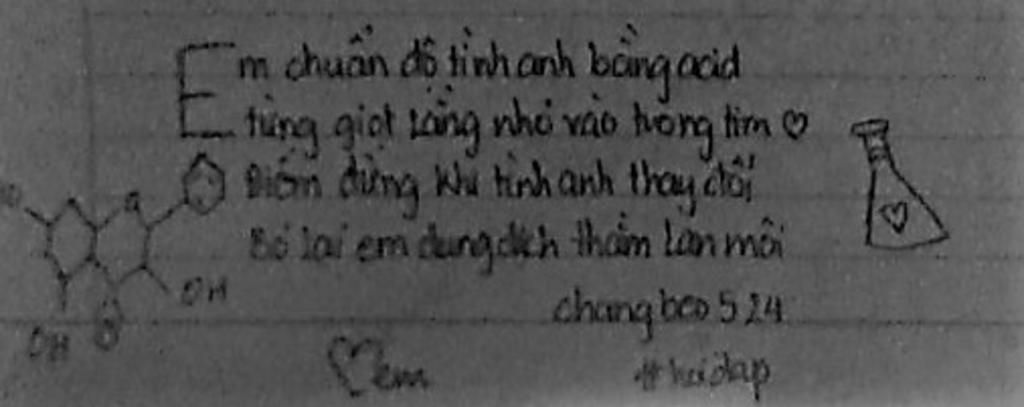 Em chuẩn độ tình anh bằng acid
từng giọt lắng nhỏ vào trong tim ♡
Điểm dừng khi tình anh thay đổi
Bỏ lại em dung dịch thắm làn môi
changbeo 524
OH
OH O
♡em #hoidap